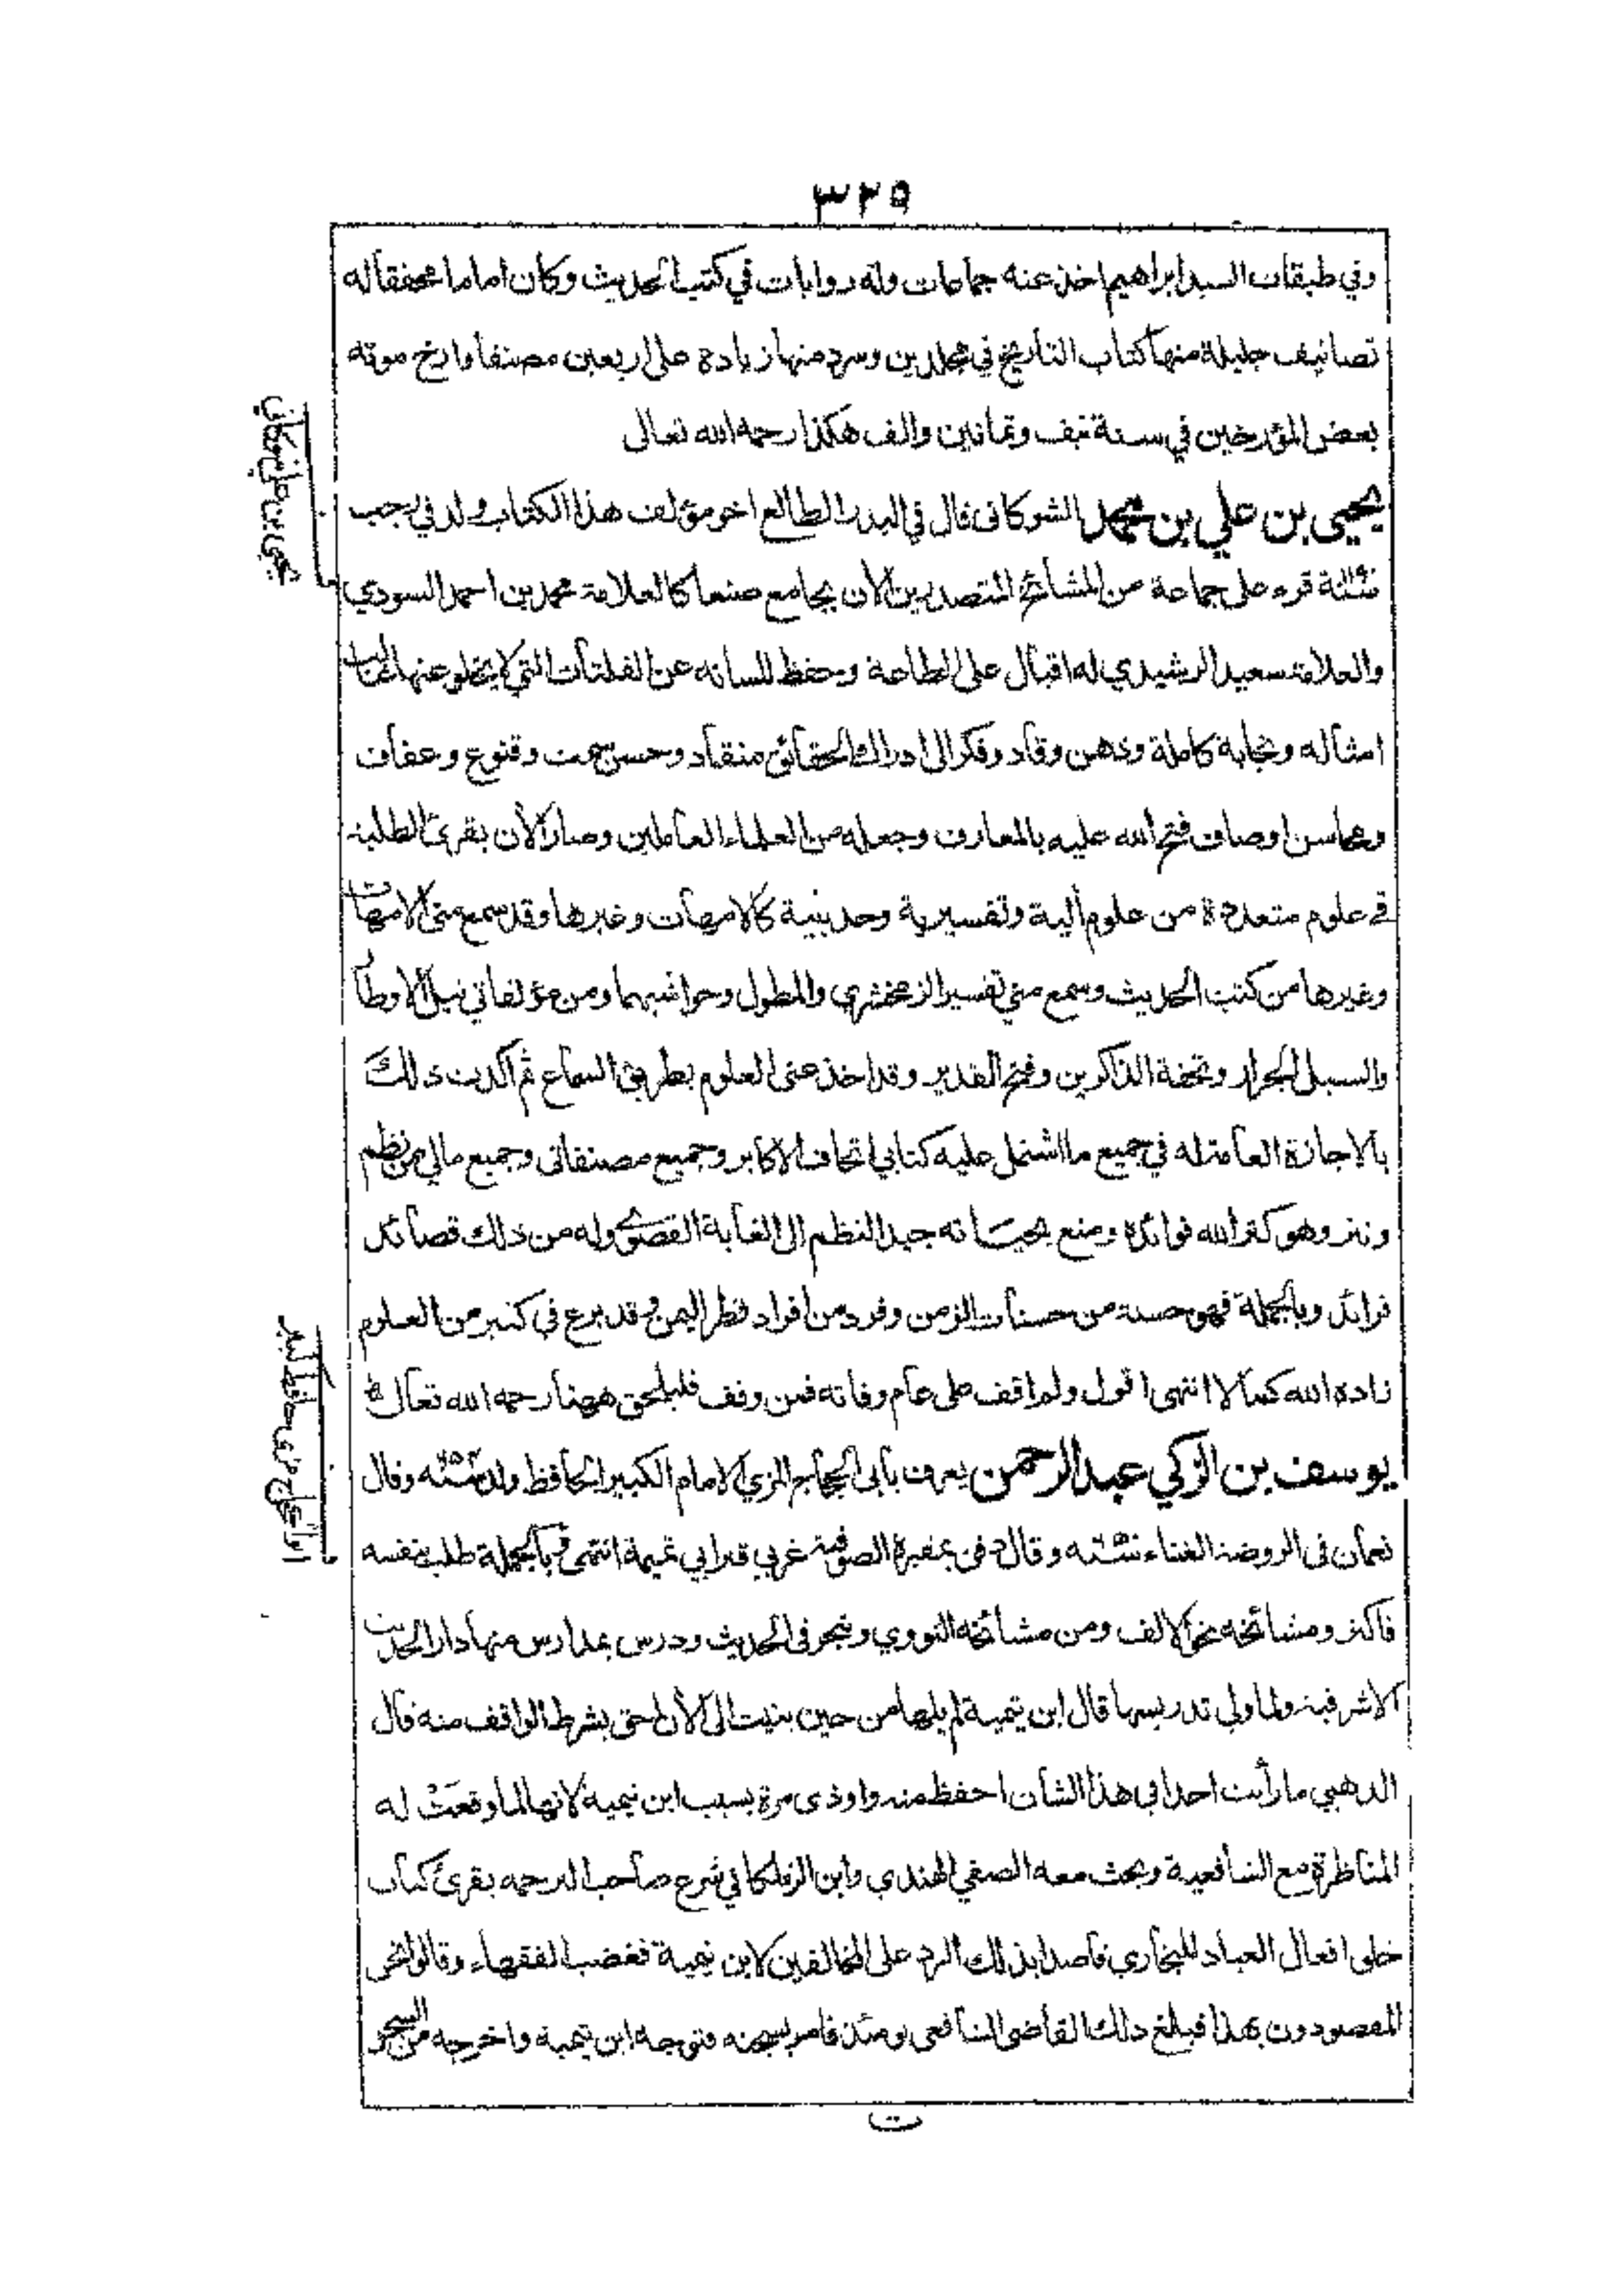 ٣٢٥
وفي طبقات السيد ابراهيم اخذ عنه جماعات وله روايات في كتب الحديث وكان اماما محققا له
تصانيف جليلة منها كتاب التاريخ في مجلدين وسرد منها زيادة على اربعين مصنفا وارخ موته
بعض المؤرخين في سنة نيف وثمانين والف هكذا رحمه الله تعالى
يحيى بن علي بن محمد الشوكانى قال في البدر الطالع اخو مؤلف هذا الكتاب ولد في رجب
قرء على جماعة من المشائخ المتصدرين الآن بجامع صنعا كالعلامة محمد بن احمد السودي
والعلامة سعيد الرشيدي له اقبال على الطاعة وحفظ للسانه عن الفلتات التي لا يخلو عنها غالب
امثاله ونجابة كاملة وذهن وقاد وفكر الى ادراك الحقائق منقاد وحسن سمت وقنوع وعفاف
ومحاسن اوصاف فتح الله عليه بالمعارف وجعله من العلماء العاملين وصار الآن يقرئ الطلبة
في علوم متعددة من علوم آلية وتفسيرية وحديثية كالامهات وغيرها وقد سمع مني الامهات
وغيرها من كتب الحديث وسمع مني تفسير الزمخشري والمطول وحواشيهما ومن مؤلفاتي نيل الاوطار
والسيل الجرار وتحفة الذاكرين وفتح القدير وقد اخذ عنى العلوم بطريق السماع ثم اكدت ذلك
بالاجازة العامة له في جميع ما اشتمل عليه كتابي اتحاف الاكابر وجميع مصنفاتى وجميع مالي من نظم
ونثر وهو كثر الله فوائده ومتع بحياته جيد النظم الى الغاية القصوى وله من ذلك قصائد
فرائد وبالجملة فهو حسنة من حسنات الزمن وفرد من افراد قطر اليمن وقد برع في كثير من العلوم
زاده الله كمالا انتهى اقول ولم اقف على عام وفاته فمن وقف فليلحق ههنا رحمه الله تعالى
يوسف بن الزكي عبد الرحمن يعرف بابى الحجاج المزي الامام الكبير الحافظ ولد وقال
نعمان فى الروضة الغناء وقال دفن بمقبرة الصوفية غربي قبر ابي تيمية انتهى وبالجملة طلب بنفسه
فاكثر ومشائخه نحو الالف ومن مشائخه النووي وتبحر فى الحديث ودرس بمدارس منها دار الحديث
الاشرفية ولما ولي تدريسها قال ابن تيمية لم يلها من حين بنيت الى الآن احق بشرط الواقف منه قال
الذهبي ما رأيت احدا في هذا الشان احفظ منه واوذى مرة بسبب ابن تيمية لانه لما وقعت له
المناظرة مع الشافعية وبحث معه الصفي الهندي وابن الزملكاني شرع صاحب الترجمه يقرئ كتاب
خلق افعال العباد للبخاري قاصدا بذلك الرد على المخالفين لابن تيمية فغضب الفقهاء وقالوا نحن
المقصودون بهذا فبلغ ذلك القاضى الشافعى يومئذ فامر بسجنه فتوجه ابن تيمية واخرجه من السجن و
ت
يحيى بن علي شوكاني
ابو الحجاج مزى حافظ كبير